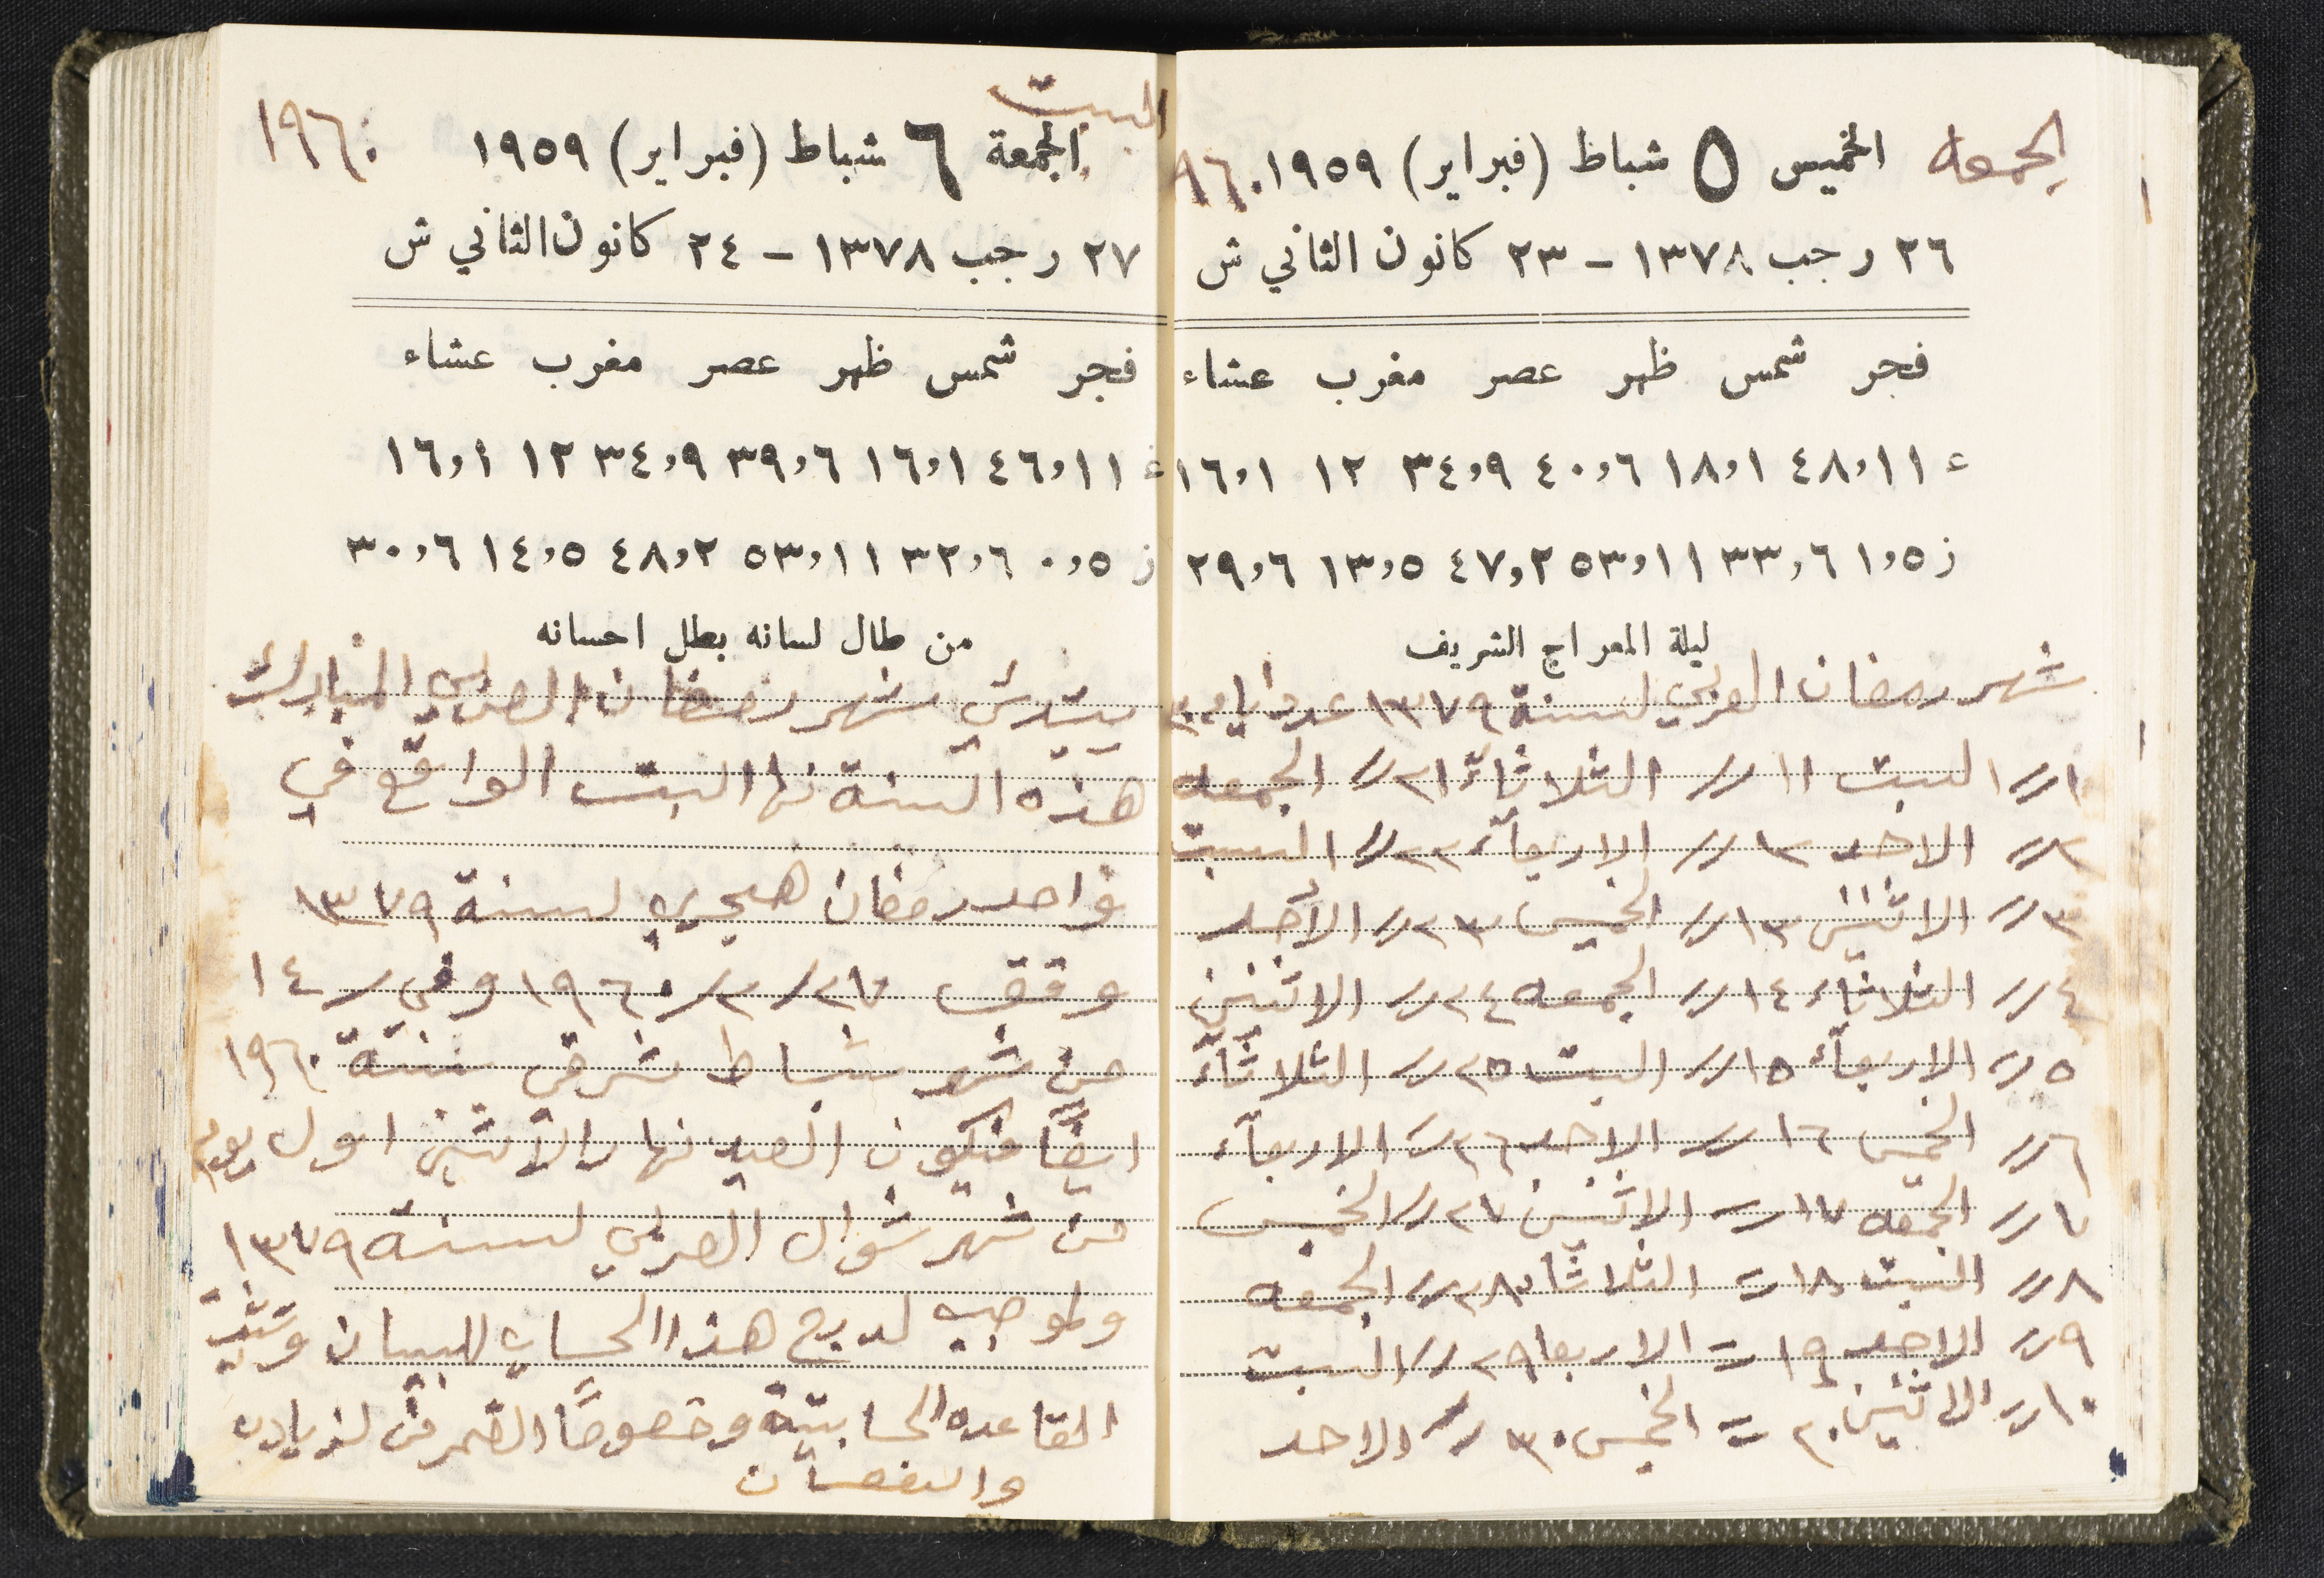 الجمعه الخميس ٥ شباط (فبراير) ١٩٥٩ ٩٦٠
٢٦ رجب ١٣٧٨ - ٢٣ كانون الثاني ش
فجر شمس ظهر عصر مغرب عشاء
ع ٤٨،١١ ١٨،١ ٤٠،٦ ٣٤،٩ ١٢ ١٦،١
ز ١،٥ ٣٣،٦ ٥٣،١١ ٤٧،٢ ١٣،٥ ٢٩،٦
ليلة المعراج الشريف
شهر رمضان العربي لسنة ١٣٧٩ عدد ايام ٣٠
١ // السبت ١١ // الثلاثاء ٢١ // الجمعه
٢ // الاحد ١٢ // الاربعآء ٢٢ // السبت
٣ // الاثنين ١٣ // الخميس ٢٣ // الاحد
٤ // الثلاثاء ١٤ // الجمعه ٢٤ // الاثنين
٥ // الاربعآء ١٥ // السبت ٢٥ // الثلاثآء
٦ // الخميس ١٦ // الاحد ٢٦ // الاربعآء
٧ // الجمعه ١٧ // الاثنين ٢٧ // الخميس
٨ // السبت ١٨ // الثلاثا ٢٨ // الجمعه
٩ // الاحد ١٩ // الاربعا ٢٩ // السبت
١٠ // الاثنين ٢٠ // الخميس ٣٠ // الاحد
السبت
الجمعة ٦ شباط (فبراير) ١٩٥٩ ١٩٦٠
٢٧ رجب ١٣٧٨ - ٢٤ كانون الثاني ش
فجر شمس ظهر عصر مغرب عشاء
ع ٤٦،١١ ١٦،١ ٣٩،٦ ٣٤،٩ ١٢ ١٦،١
ز ٠،٥ ٣٢،٦ ٥٣،١١ ٤٨،٢ ١٤،٥ ٣٠،٦
من طال لسانه بطل احسانه
يبتدئ شهر رمضان العربي المبارك
هذه السنة نهار السبت الواقع في
واحد رمضان هجريه لسنة ١٣٧٩
وفق ٢٧/٢/١٩٦٠ وفي / ١٤
من شهر شباط شرقي سنة ١٩٦٠
ايضًا فيكون العيد نهار الاثنين اول يوم
من شهر شوال العربي لسنة ١٣٧٩
لدرج هذا الحساب للبيان
القاعده الحسابيّة وخصوصًا لزياده
والنقصان